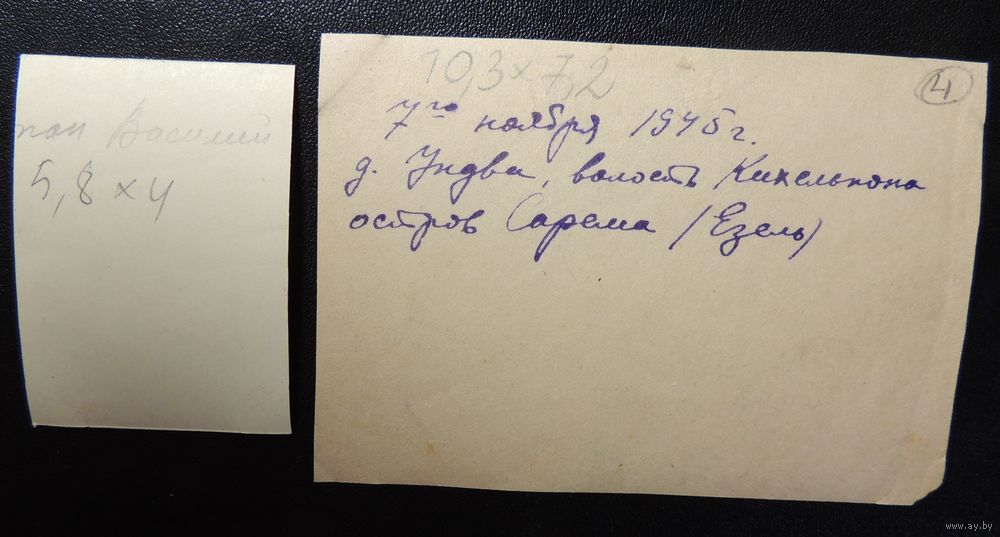 Василий
5,8 х 4
10,3 х 7,2
4
7го ноября 1945 г.
д. Ундва, волость Кихельконa
остров Сарема (Езель)
www.ay.by